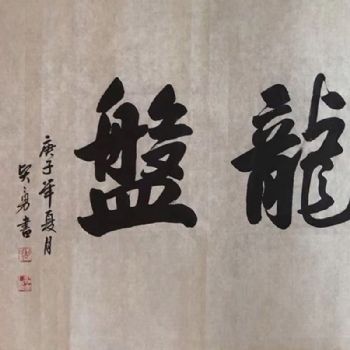 龍盤
庚子年夏月
勇書